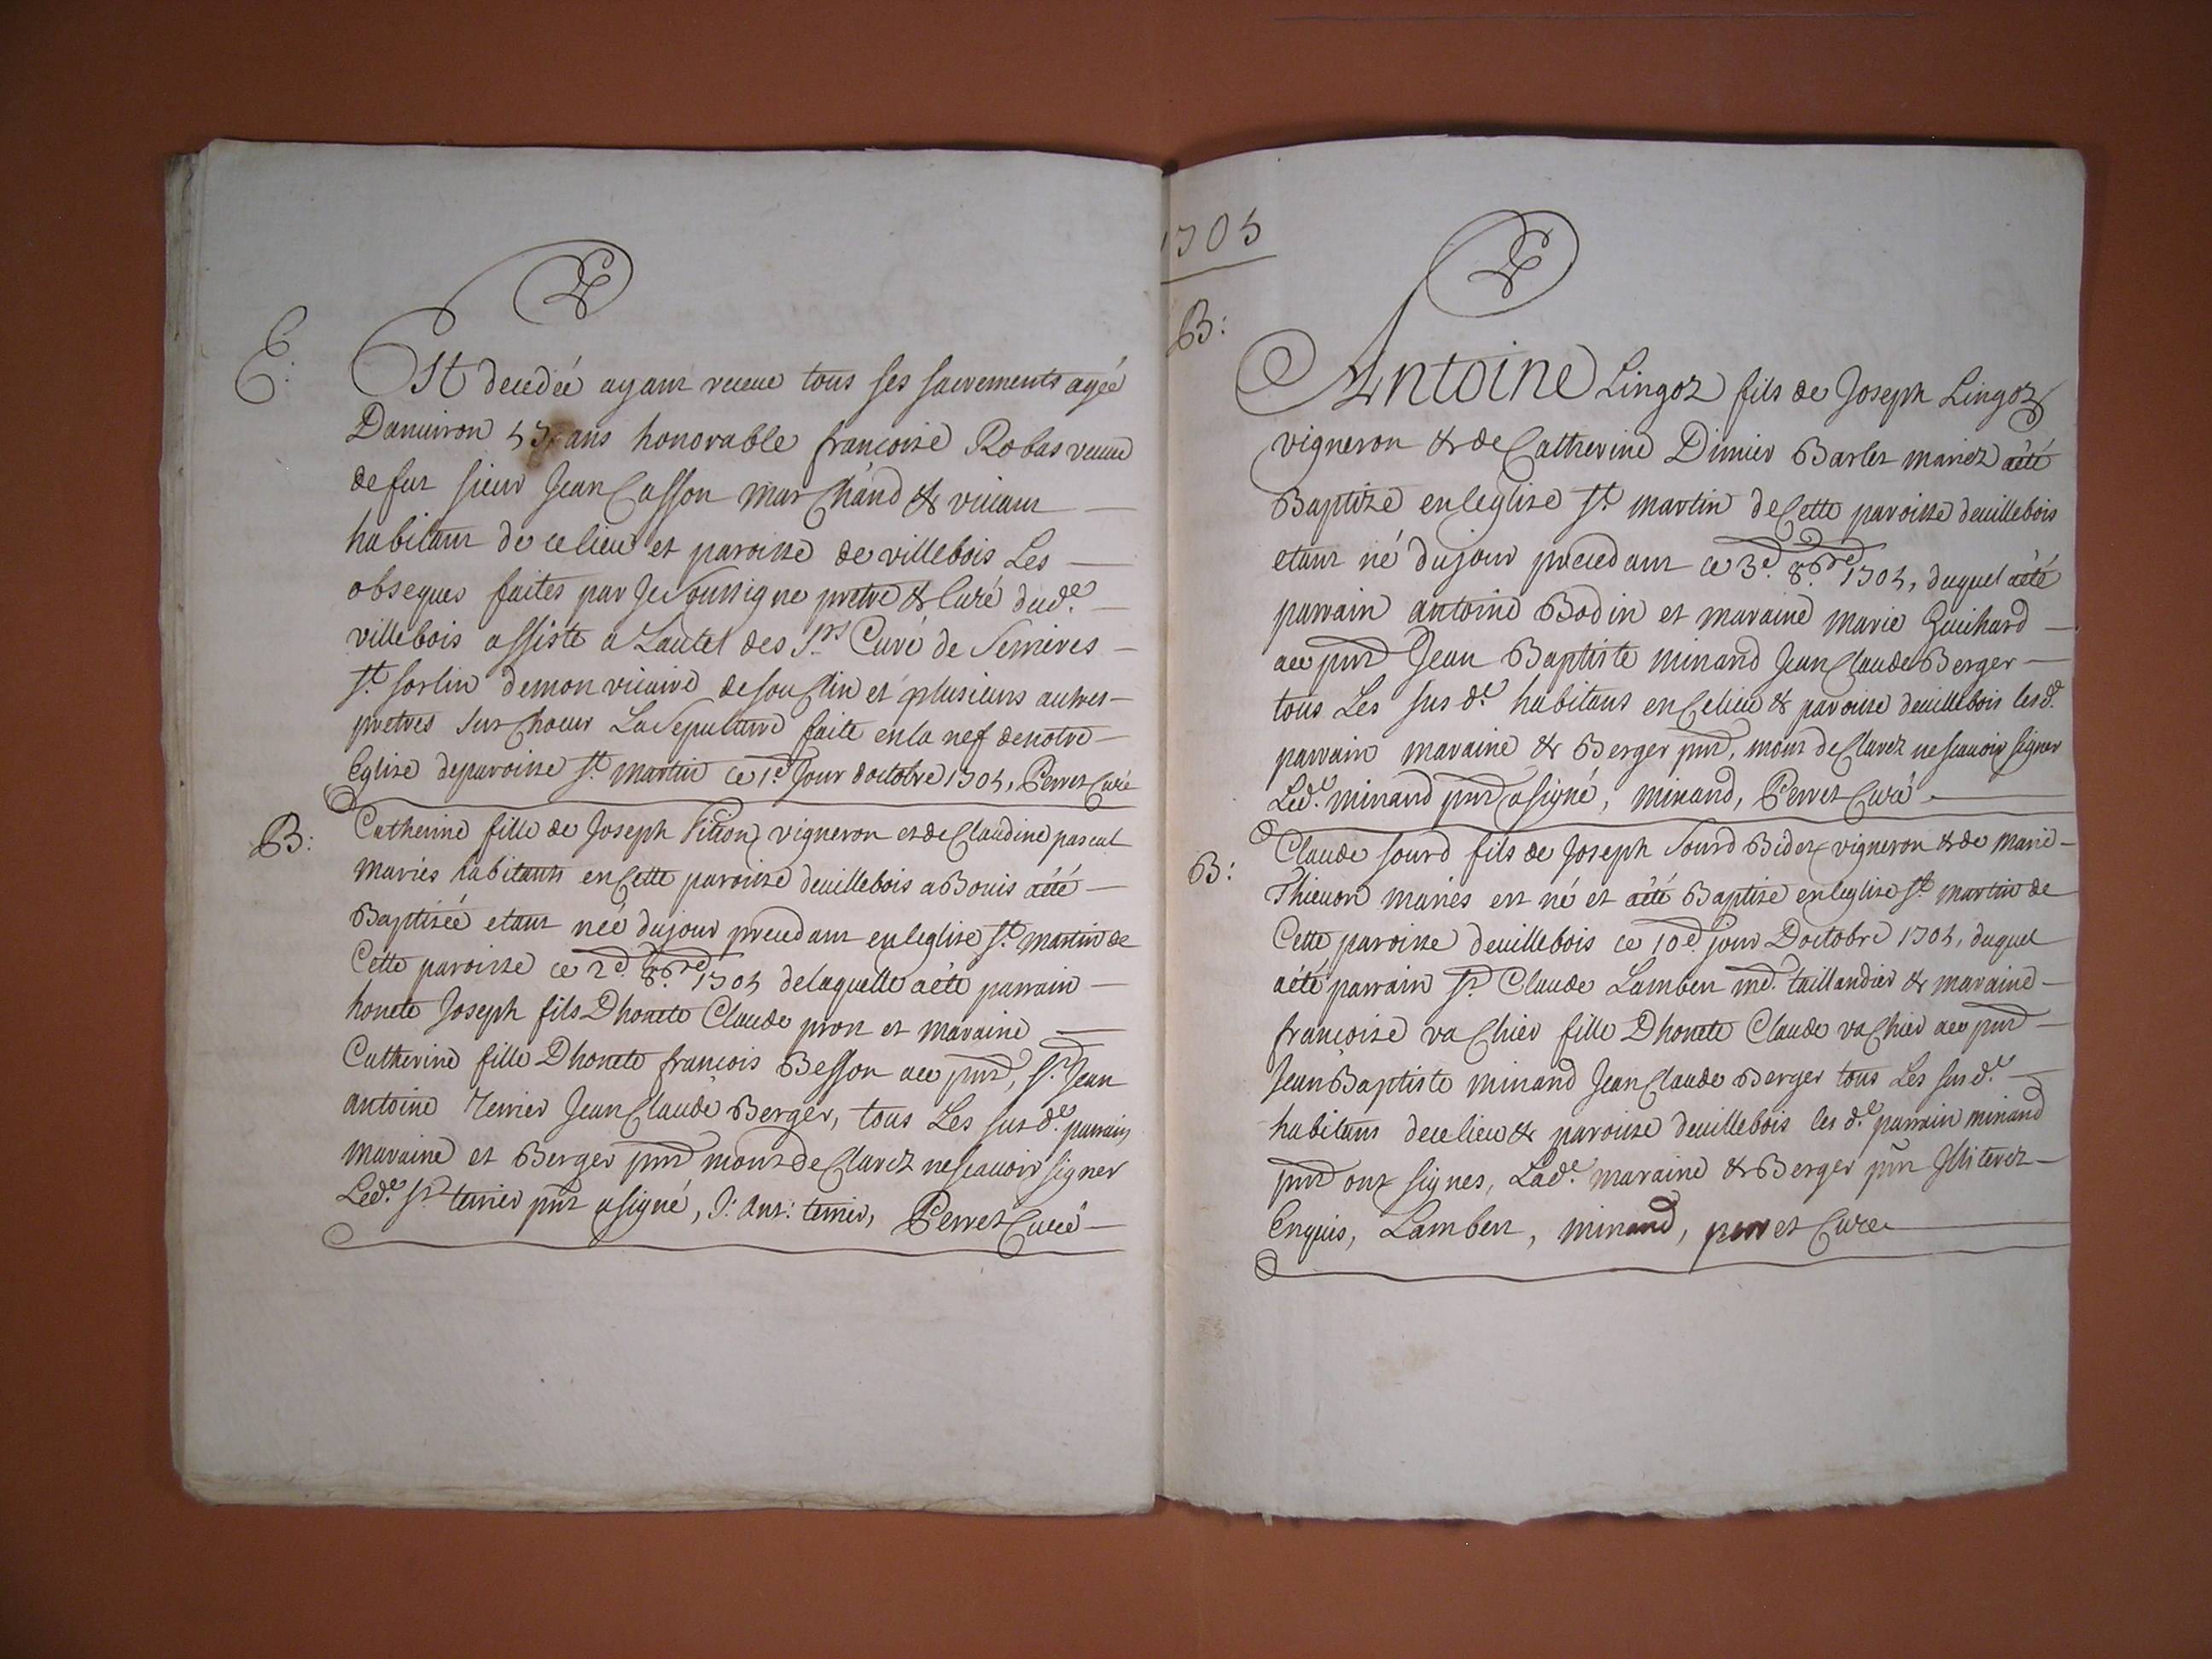 E:
Est decedée ayant receue tous ses sacrements agée
Danuiron ans honorable francoise Robas veuue
de fut sieur Jean Casson marChand & viuant
habitant de ce lieu et paroisse de villebois Les
obseques faites par Je soussigne pretre & Curé dud.e
villebois assiste a Lautel des Srs Curé de Serrieres
St sorlin demon vicaire de souClin et plusieurs autres
pretres sur Choeur La Sepulture faite en la nef denotre
Eglise deparoisse St martin ce 1.er Jour doctobre 1705, Perret Curé
B:
Catherine fille de Joseph Pition vigneron et de Claudine pascal
mariés habitants en Cette paroisse deuillebois a Bouis aété
Baptisée etant neé dujour precedant en leglise St martin de
Cette paroisse ce 2.e 8.bre 1705 delaquelle aété parrain
honete Joseph fils Dhonete Claude pron et maraine
Catherine fille Dhonete françois Besson aec pnt, Sr Jean
antoine terrier Jean Claude Berger, tous Les sus d.e parrain
maraine et Berger pnt mont deClarez nescauoir signer
Led.e Sr terrier pnt a signé, J: ant: terrier, Perret Curé
1705
B:
Antoine Lingoz fils de Joseph Lingoz
vigneron & de Catherine Dimier Barlet mariez aété
Baptizé en leglise St martin de Cette paroisse deuillebois
etant né dujour precedant ce 3.e 8.bre 1705, duquel aété
parrain antoine Bodin et maraine marie Guichard
aec pnt Jean Baptiste minand Jean Claude Berger
tous Les sus d.e habitans en Celieu & paroisse deuillebois lesd.e
parrain maraine & Berger pnt, mont deClarez nescauoir signer
Led.e minand pnt a signé, minand, Perret Curé
B:
Claude sourd fils de Joseph Sourd Bidet vigneron & de marie
Thieuon mariés est né et aété Baptisé en leglise St martin de
Cette paroisse deuillebois ce 10.e jour Doctobre 1705, duquel
aété parrain Sr Claude Lambert md. taillandier & maraine
françoise vaChier fille Dhonete Claude vaChier aec pnt
Jean Baptiste minand Jean Claude Berger tous Les sus d.e
habitans de celieu & paroisse deuillebois les d.e parrain minand
pnt ont signes, Lad.e maraine & Berger pnt Illiterez
Enquis, Lambert, minand, perret Curé